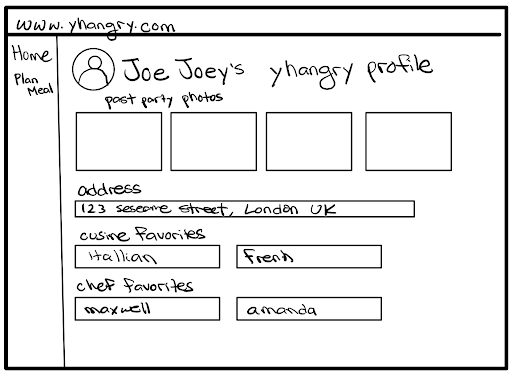 www.yhangry.com
Home
Plan
Meal
Joe Joey's yhangry profile
past party photos
address
123 seseame street, London UK
cusine favorites
Itallian
Frenh
chef favorites
maxwell
amanda